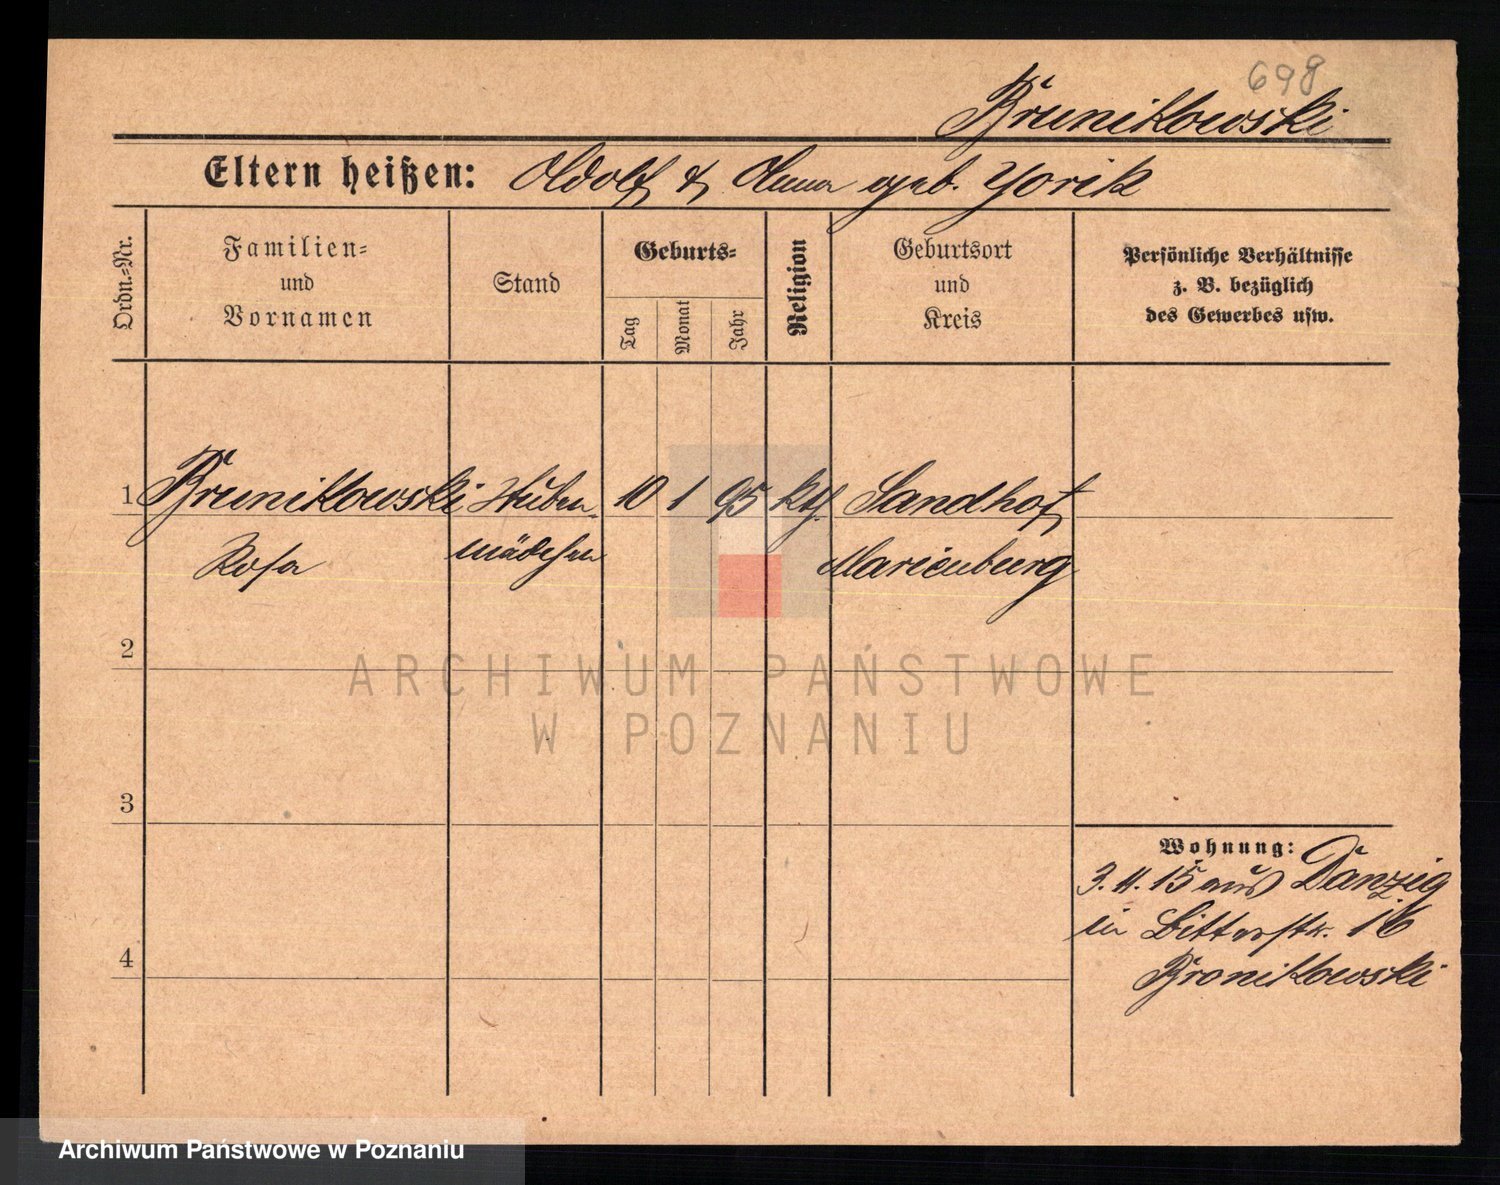 698
Brunikowski
Eltern heißen: Adolf & Anna geb. Yorik
Ordn.=Nr.
Familien=
und
Vornamen
Stand
Geburts=
Tag
Monat
Jahr
Religion
Geburtsort
und
Kreis
Persönliche Verhältnisse
z. B. bezüglich
des Gewerbes usw.
1 Brunikowski Stuben 10 1 95 kth. Sandhof
Rosa mädchen Marienburg
2
3
4
Wohnung:
3. 11. 15 aus Danzig
in Ritterstr. 16
Bronikowski
ARCHIWUM PAŃSTWOWE
W POZNANIU
Archiwum Państwowe w Poznaniu